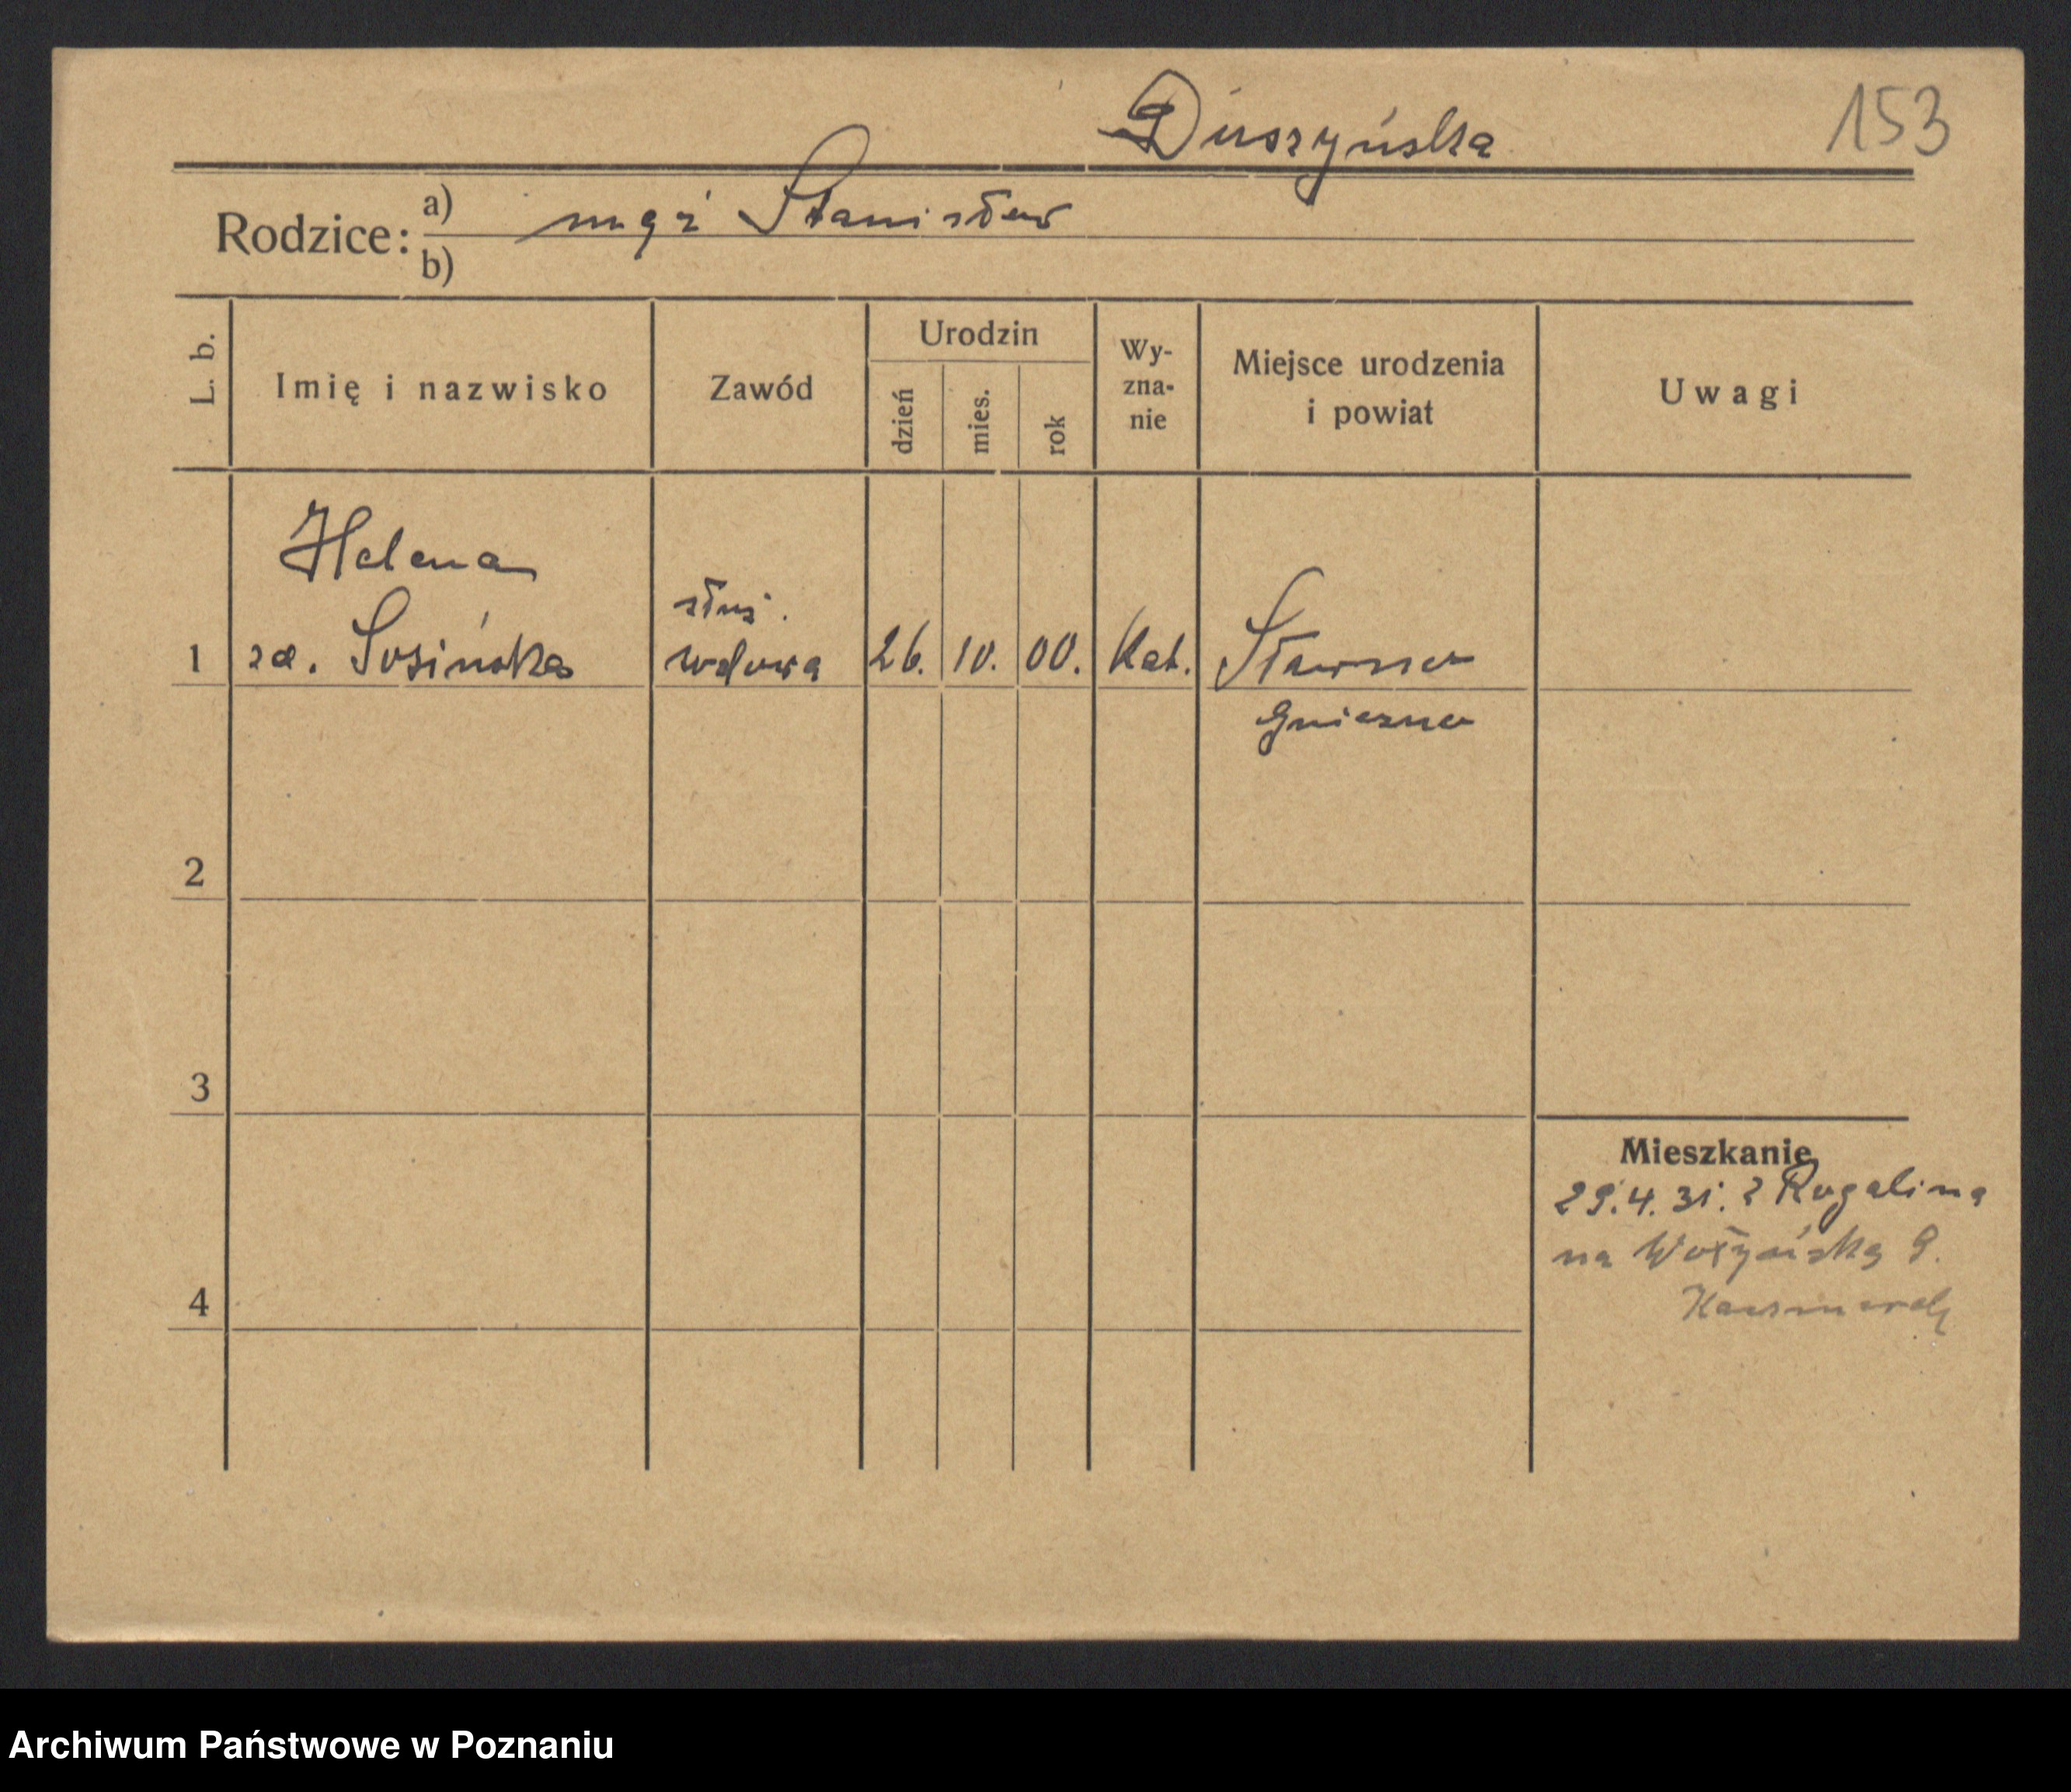 Duszyńska
153
Rodzice: a) mąż Stanisław
b)
L. b.
Imię i nazwisko
Zawód
Urodzin
dzień
mies.
rok
Wy-
zna-
nie
Miejsce urodzenia
i powiat
Uwagi
Helena
służ.
1 zd. Sosińska wdowa 26. 10. 00. kat. Sławno
Gniezno
2
3
Mieszkanie
29.4.31. z Rogalina
na Wołyńską 9.
4
Archiwum Państwowe w Poznaniu